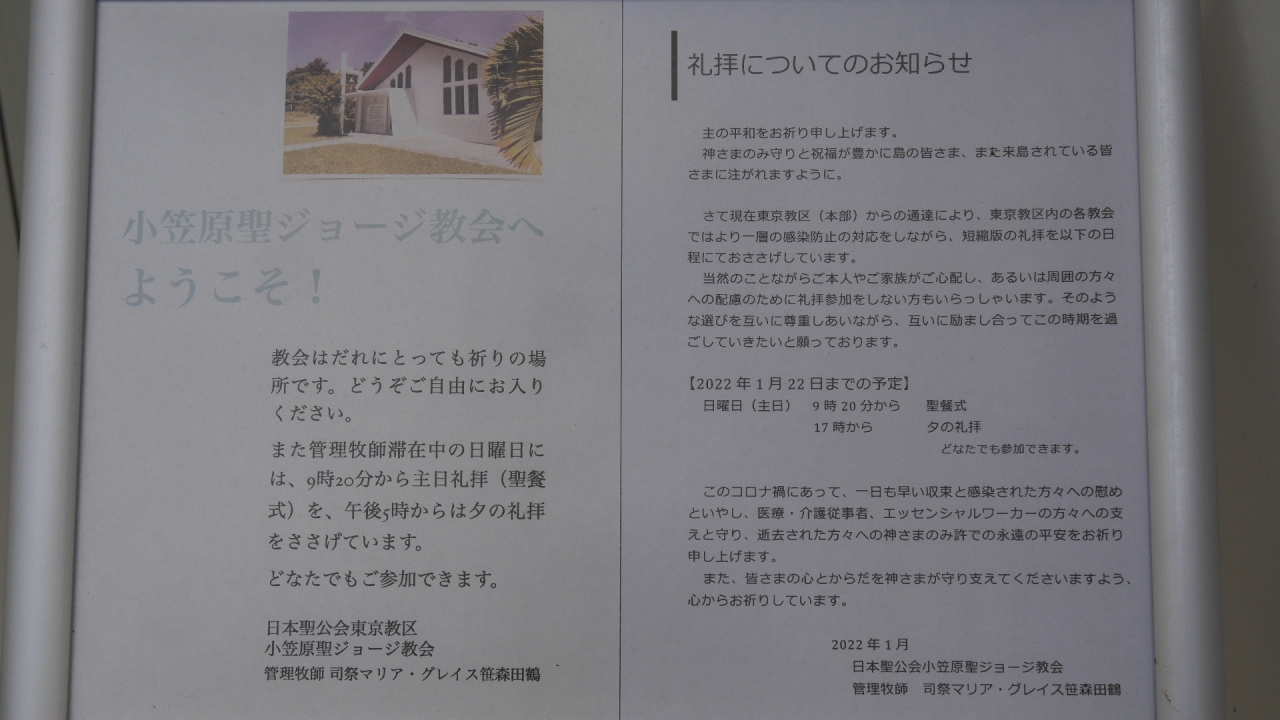 小笠原聖ジョージ教会へ
ようこそ！
教会はだれにとっても祈りの場
所です。どうぞご自由にお入り
ください。
また管理牧師滞在中の日曜日に
は、9時20分から主日礼拝（聖餐
式）を、午後5時からは夕の礼拝
をささげています。
どなたでもご参加できます。
日本聖公会東京教区
小笠原聖ジョージ教会
管理牧師 司祭マリア・グレイス笹森田鶴
礼拝についてのお知らせ
主の平和をお祈り申し上げます。
神さまのみ守りと祝福が豊かに島の皆さま、また来島されている皆
さまに注がれますように。
さて現在東京教区（本部）からの通達により、東京教区内の各教会
ではより一層の感染防止の対応をしながら、短縮版の礼拝を以下の日
程にておささげしています。
当然のことながらご本人やご家族がご心配し、あるいは周囲の方々
への配慮のために礼拝参加をしない方もいらっしゃいます。そのよう
な選びを互いに尊重しあいながら、互いに励まし合ってこの時期を過
ごしていきたいと願っております。
【2022 年 1 月 22 日までの予定】
日曜日（主日） 9 時 20 分から 聖餐式
17 時から 夕の礼拝
どなたでも参加できます。
このコロナ禍にあって、一日も早い収束と感染された方々への慰め
といやし、医療・介護従事者、エッセンシャルワーカーの方々への支
えと守り、逝去された方々への神さまのみ許での永遠の平安をお祈り
申し上げます。
また、皆さまの心とからだを神さまが守り支えてくださいますよう、
心からお祈りしています。
2022 年 1 月
日本聖公会小笠原聖ジョージ教会
管理牧師 司祭マリア・グレイス笹森田鶴